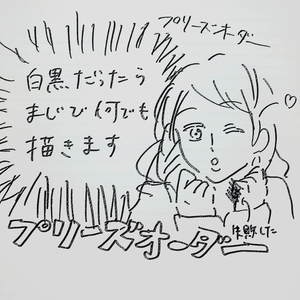 プリーズオーダー
白黒だったら
まじで何でも
描きます
失敗した
プリーズオーダー